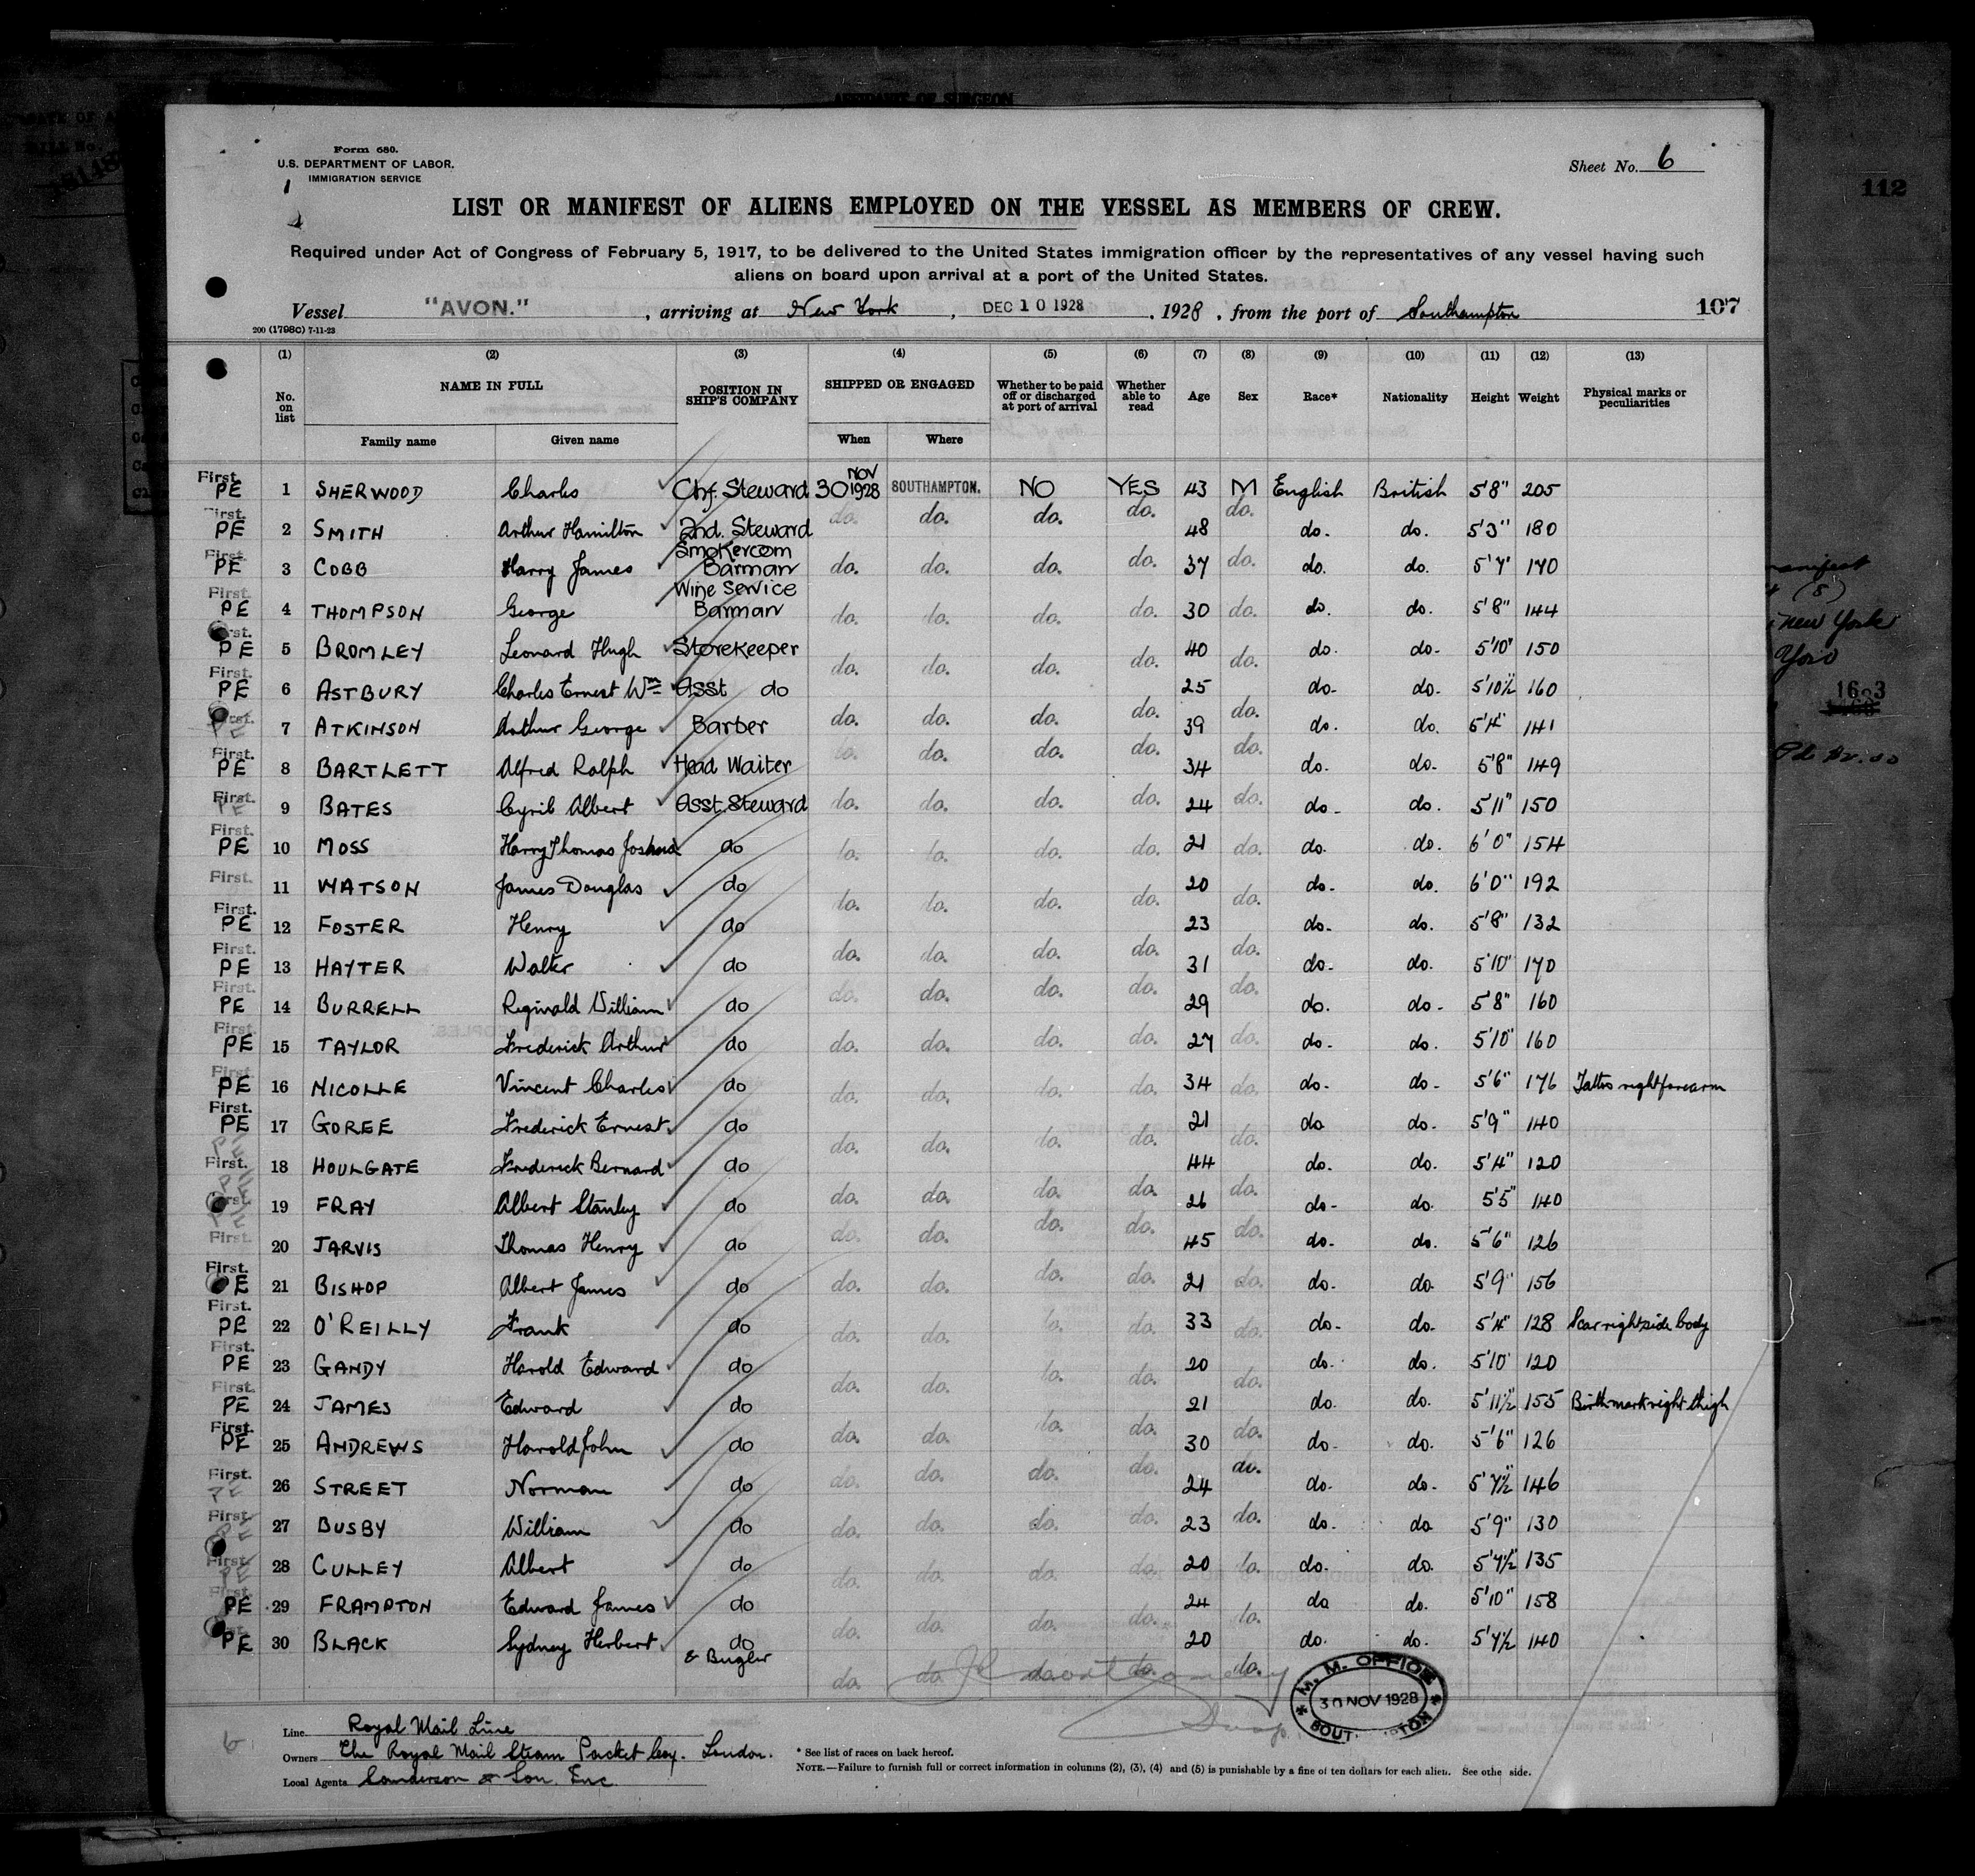 AFFIDAVIT OF SURGEON
Form 680.
U.S. DEPARTMENT OF LABOR.
IMMIGRATION SERVICE
Sheet No. 6
112
LIST OR MANIFEST OF ALIENS EMPLOYED ON THE VESSEL AS MEMBERS OF CREW.
Required under Act of Congress of February 5, 1917, to be delivered to the United States immigration officer by the representatives of any vessel having such
aliens on board upon arrival at a port of the United States.
Vessel "AVON." , arriving at New York , DEC 10 1928 , 1928 , from the port of Southampton 107
200 (1798C) 7-11-23
(1) (2) (3) (4) (5) (6) (7) (8) (9) (10) (11) (12) (13)
No. on list NAME IN FULL POSITION IN SHIP'S COMPANY SHIPPED OR ENGAGED Whether to be paid off or discharged at port of arrival Whether able to read Age Sex Race* Nationality Height Weight Physical marks or peculiarities
Family name Given name When Where
First. PE 1 SHERWOOD Charles Chf. Steward 30 NOV 1928 SOUTHAMPTON. NO YES 43 M English British 5'8" 205
First. PE 2 SMITH Arthur Hamilton 2nd. Steward do. do. do. do. 48 do. do. do. 5'3" 180
First. PE 3 COBB Harry James Smokeroom Barman do. do. do. do. 37 do. do. do. 5'7" 170
First. PE 4 THOMPSON George Wine Service Barman do. do. do. do. 30 do. do. do. 5'8" 144
First. PE 5 BROMLEY Leonard Hugh Storekeeper do. do. do. do. 40 do. do. do. 5'10" 150
First. PE 6 ASTBURY Charles Ernest Wm Asst do do. do. do. do. 25 do. do. do. 5'10½ 160
First. PE 7 ATKINSON Arthur George Barber do. do. do. do. 39 do. do. do. 5'4" 141
First. PE 8 BARTLETT Alfred Ralph Head Waiter do. do. do. do. 34 do. do. do. 5'8" 149
First. PE 9 BATES Cyril Albert Asst. Steward do. do. do. do. 24 do. do. do. 5'11" 150
First. PE 10 MOSS Harry Thomas Joshua do do. do. do. do. 21 do. do. do. 6'0" 154
First. 11 WATSON James Douglas do do. do. do. do. 20 do. do. do. 6'0" 192
First. PE 12 FOSTER Henry do do. do. do. do. 23 do. do. do. 5'8" 132
First. PE 13 HAYTER Walter do do. do. do. do. 31 do. do. do. 5'10" 170
First. PE 14 BURRELL Reginald William do do. do. do. do. 29 do. do. do. 5'8" 160
First. PE 15 TAYLOR Frederick Arthur do do. do. do. do. 27 do. do. do. 5'10" 160
First. PE 16 NICOLLE Vincent Charles do do. do. do. do. 34 do. do. do. 5'6" 176 Tattoo right forearm
First. PE 17 GOREE Frederick Ernest do do. do. do. do. 21 do. do. do. 5'9" 140
PE First. 18 HOULGATE Frederick Bernard do do. do. do. do. 44 do. do. do. 5'4" 120
PE First. 19 FRAY Albert Stanley do do. do. do. do. 26 do. do. do. 5'5" 140
PE First. 20 JARVIS Thomas Henry do do. do. do. do. 45 do. do. do. 5'6" 126
First. PE 21 BISHOP Albert James do do. do. do. do. 21 do. do. do. 5'9" 156
First. PE 22 O'REILLY Frank do do. do. do. do. 33 do. do. do. 5'4" 128 Scar right side body
First. PE 23 GANDY Harold Edward do do. do. do. do. 20 do. do. do. 5'10" 120
First. PE 24 JAMES Edward do do. do. do. do. 21 do. do. do. 5'11½" 155 Birthmark right thigh
First. PE 25 ANDREWS Harold John do do. do. do. do. 30 do. do. do. 5'6" 126
First. PE 26 STREET Norman do do. do. do. do. 24 do. do. do. 5'7½" 146
First. PE 27 BUSBY William do do. do. do. do. 23 do. do. do. 5'9" 130
First. PE 28 CULLEY Albert do do. do. do. do. 20 do. do. do. 5'7½" 135
First. PE 29 FRAMPTON Edward James do do. do. do. do. 24 do. do. do. 5'10" 158
First. PE 30 BLACK Sydney Herbert do & Bugler do. do. do. do. 20 do. do. do. 5'7½ 140
do. do. do. do. do.
M. M. OFFICE
30 NOV 1928
SOUTHAMPTON
6
Line Royal Mail Line
Owners The Royal Mail Steam Packet Coy. London.
Local Agents Sanderson & Son. Inc
* See list of races on back hereof.
NOTE.—Failure to furnish full or correct information in columns (2), (3), (4) and (5) is punishable by a fine of ten dollars for each alien. See other side.
manifest
New York